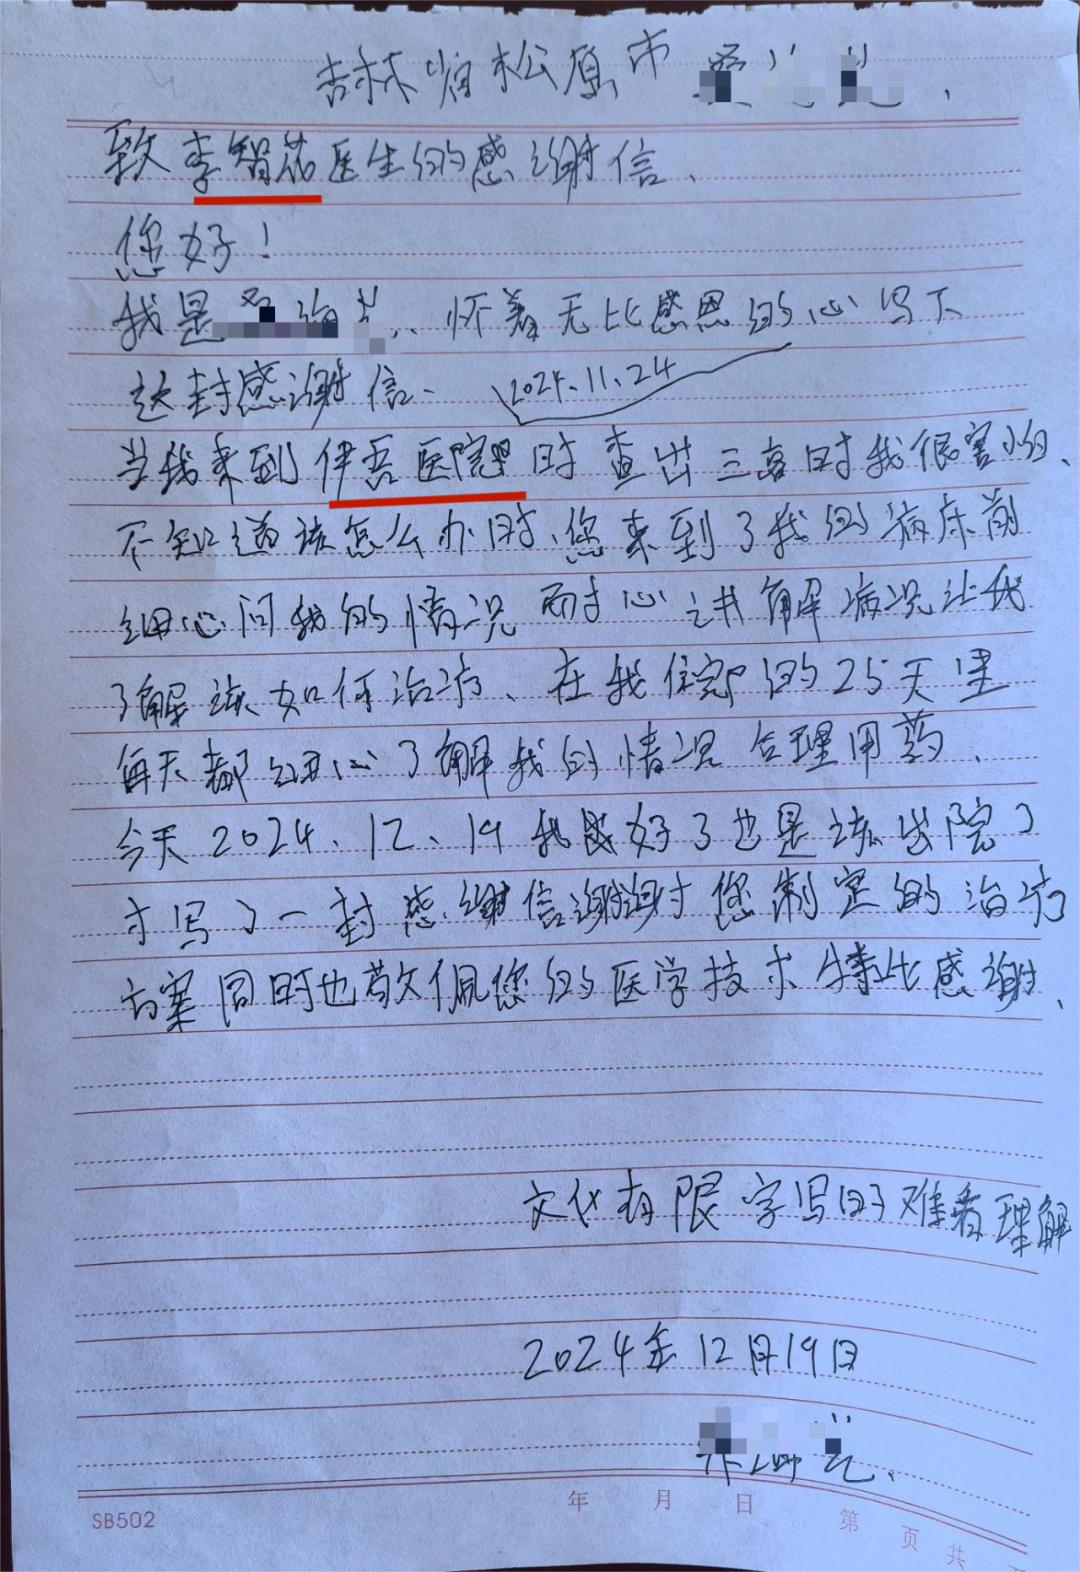 吉林省松原市
致李智茹医生的感谢信、
您好！
我是 怀着无比感恩的心写下
这封感谢信、 2024.11.24
当我来到伊吾医院时查出三高时我很害怕、
不知道该怎么办时、您来到了我的病床前
细心问我的情况耐心讲解病况让我
了解该如何治疗、在我住院的25天里
每天都细心了解我的情况合理用药、
今天2024、12、19我我好了也是该出院了
才写了一封感谢信谢谢您制定的治疗
方案同时也敬佩您的医学技术特此感谢、
文化有限字写的难看理解
2024年12月19日
年 月 日 第 页 共
SB502